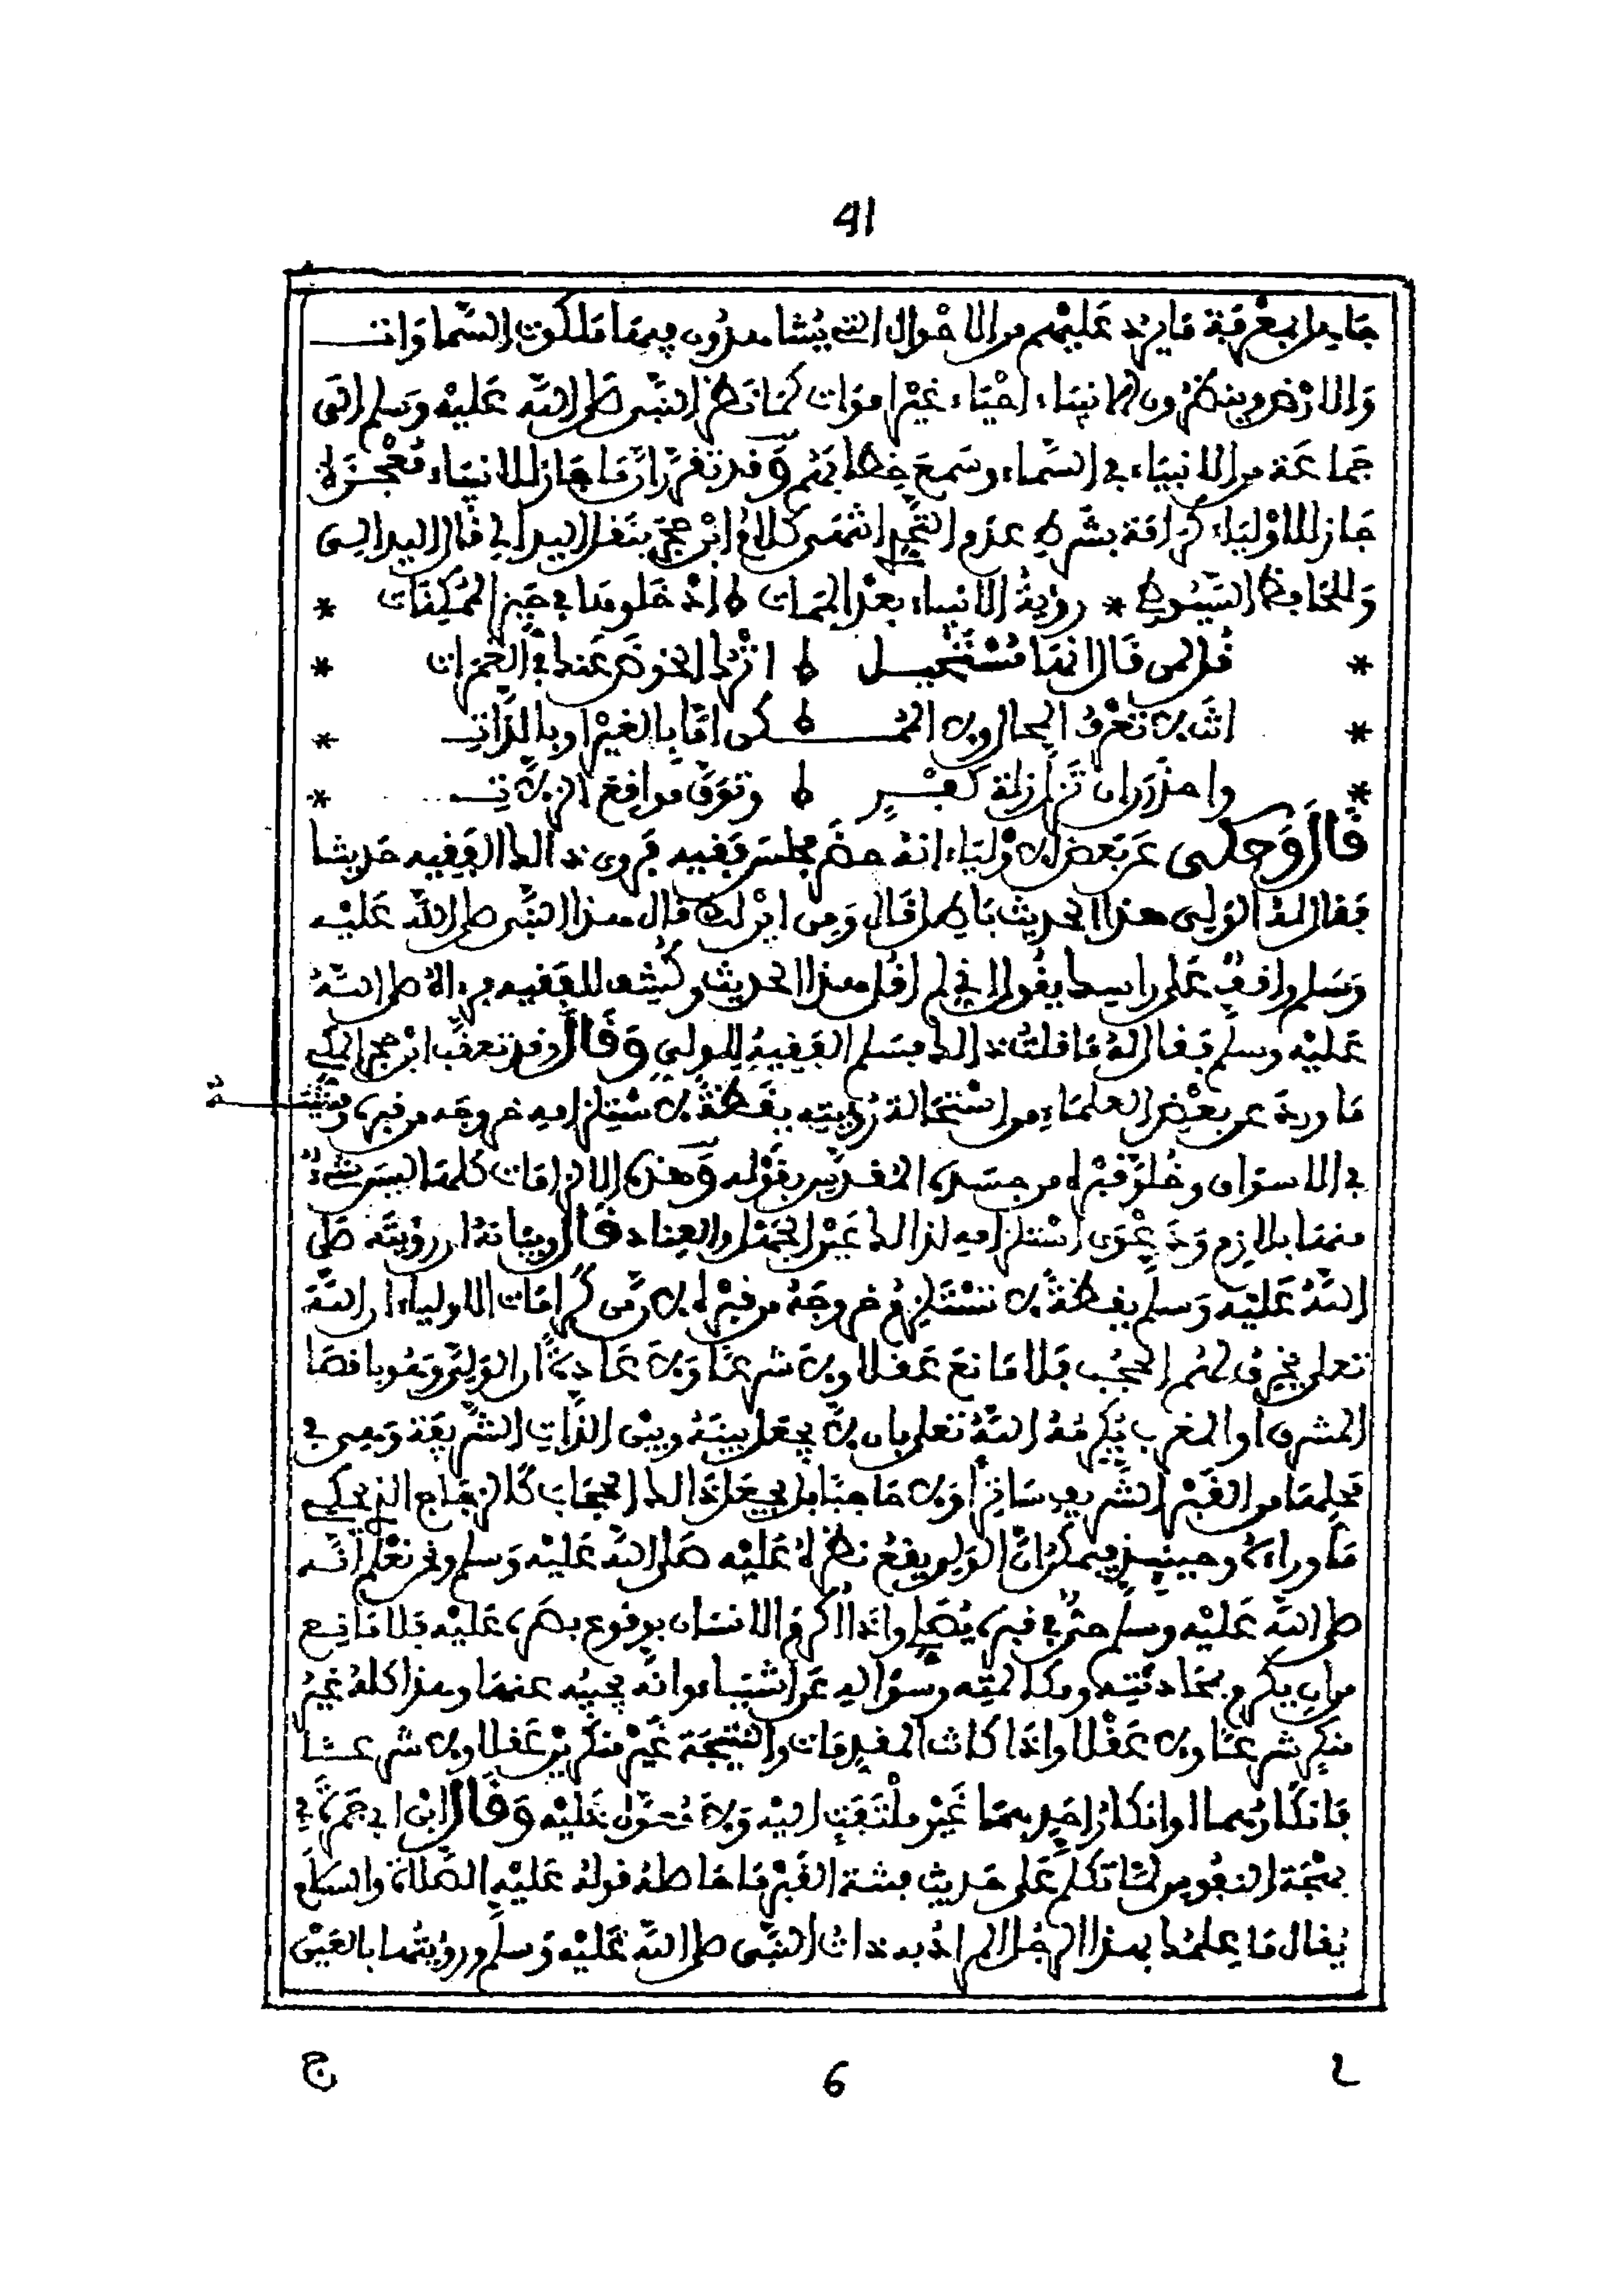 41
جاهل بمعرفة ما يرد عليهم من الاحوال التي يشاهدون فيها ملكوت السماوات
والارض وينظرون الانبياء احياء غير اموات كما نظر النبي صلى الله عليه وسلم الى
جماعة من الانبياء في السماء وسمع خطابهم وقد تقرر ان ما جاز للانبياء معجزة
جاز للاولياء كرامة بشرط عدم التحدي انتهى كلام ابن حجر بنقل البيدالي قال اليدالي
وللحافظ السيوطي * رؤية الانبياء بعد الممات ط ادخلوها في حيز الممكنات *
* قل لمن قال انها مستحيل ط اترك الخوض عنك في الغمرات *
* انت لا تعرف المحال ولا الممكن اما بالغير او بالذات *
* واحذرن ان تزل زلة كفر ط وتوق مواقع الزلات *
قال وحكي عن بعض الاولياء انه حضر مجلس فقيه فروى ذلك الفقيه حديثا
فقال له الولي هذا الحديث باطل قال ومن اين لك قال هذا النبي صلى الله عليه
وسلم واقف على راسك يقول اني لم اقل هذا الحديث وكشف للفقيه فرءاه صلى الله
عليه وسلم فقال له ما قلت ذلك فسلم الفقيه للولي وقال وقد تعقب ابن حجر المكي
ما ورد عن بعض العلماء من استحالة رؤيته يقظة لاستلزامه خروجه من قبره ومشيه
في الاسواق وخلو قبره من جسده المقدس بقوله وهذه الالزامات كلها ليس شيء
منها بلازم ودعوى استلزامه لذلك عين الجهل والعناد قال وبيانه ان رؤيته صلى
الله عليه وسلم يقظة لا تستلزم خروجه من قبره لان من كرامات الاولياء ان الله
تعلى يخرق لهم الحجب فلا مانع عقلا ولا شرعا ولا عادة ان الولي وهو باقصا
المشرق او المغرب يكرمه الله تعلى بان لا يجعل بينه وبين الذات الشريفة وهي في
محلها من القبر الشريف ساترا ولا حاجبا بان يجعل ذلك الحجاب كالزجاج الذي يحكي
ما وراءه وحينئذ فيمكن ان الولي يقع نظره عليه صلى الله عليه وسلم ونحن نعلم انه
صلى الله عليه وسلم حي في قبره يصلي واذا اكرم الانسان بوقوع بصره عليه فلا مانع
من ان يكرم بمحادثته ومكالمته وسؤاله عن اشياء وانه يجيبه عنها وهذا كله غير
منكر شرعا ولا عقلا واذا كانت المقدمات والنتيجة غير منكرين عقلا ولا شرعا
فانكارهما او انكار احدهما غير ملتفت اليه ولا معول عليه وقال ابن ابي جمرة في
بهجة النفوس لما تكلم على حديث فتنة القبر ما حاصله قوله عليه الصلاة والسلام
يقال ما علمك بهذا الرجل المراد به ذات النبي صلى الله عليه وسلم ورؤيتها بالعين
6